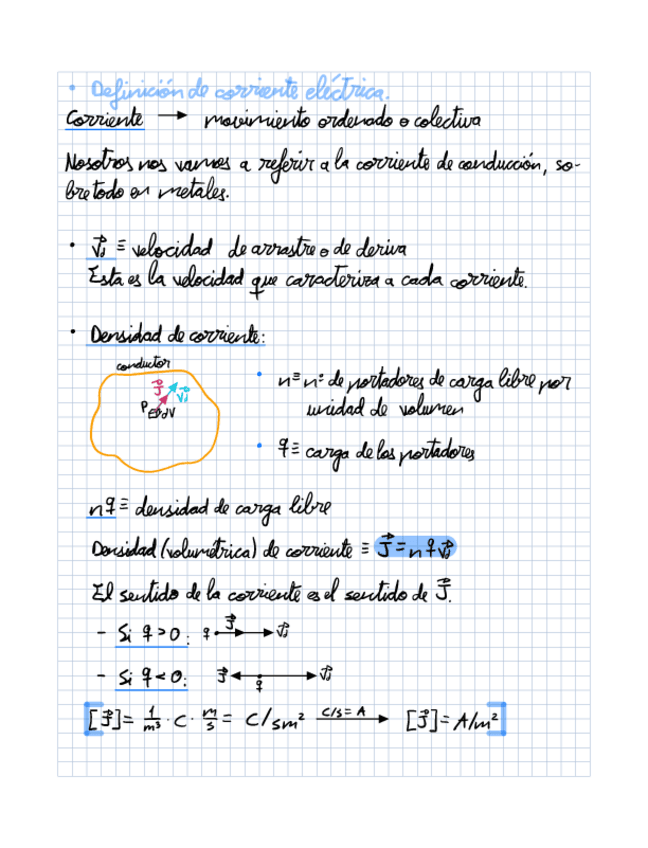 • Definición de corriente eléctrica.
Corriente → movimiento ordenado o colectiva
Nosotros nos vamos a referir a la corriente de conducción, so-
bre todo en metales.
• v⃗d ≡ velocidad de arrastre o de deriva
Esta es la velocidad que caracteriza a cada corriente.
• Densidad de corriente:
conductor
J⃗
v⃗d
P dV
• n ≡ nº de portadores de carga libre por
unidad de volumen
• q ≡ carga de los portadores
nq ≡ densidad de carga libre
Densidad (volumétrica) de corriente ≡ J⃗ = n q v⃗d
El sentido de la corriente es el sentido de J⃗.
- Si q > 0: q J⃗ v⃗d
- Si q < 0: J⃗ q v⃗d
[J⃗] = 1/m³ · C · m/s = C/sm² C/s = A → [J⃗] = A/m²